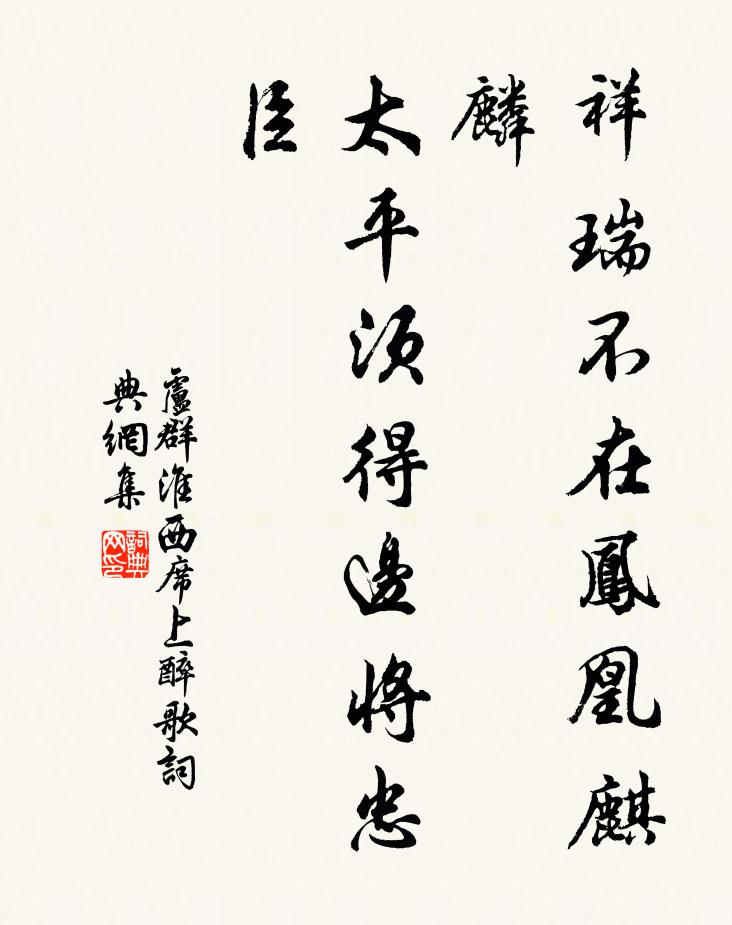 祥瑞不在鳳凰麒
麟
太平須得邊將忠
臣
盧群淮西席上醉歌詞
典網集
詞典
网印